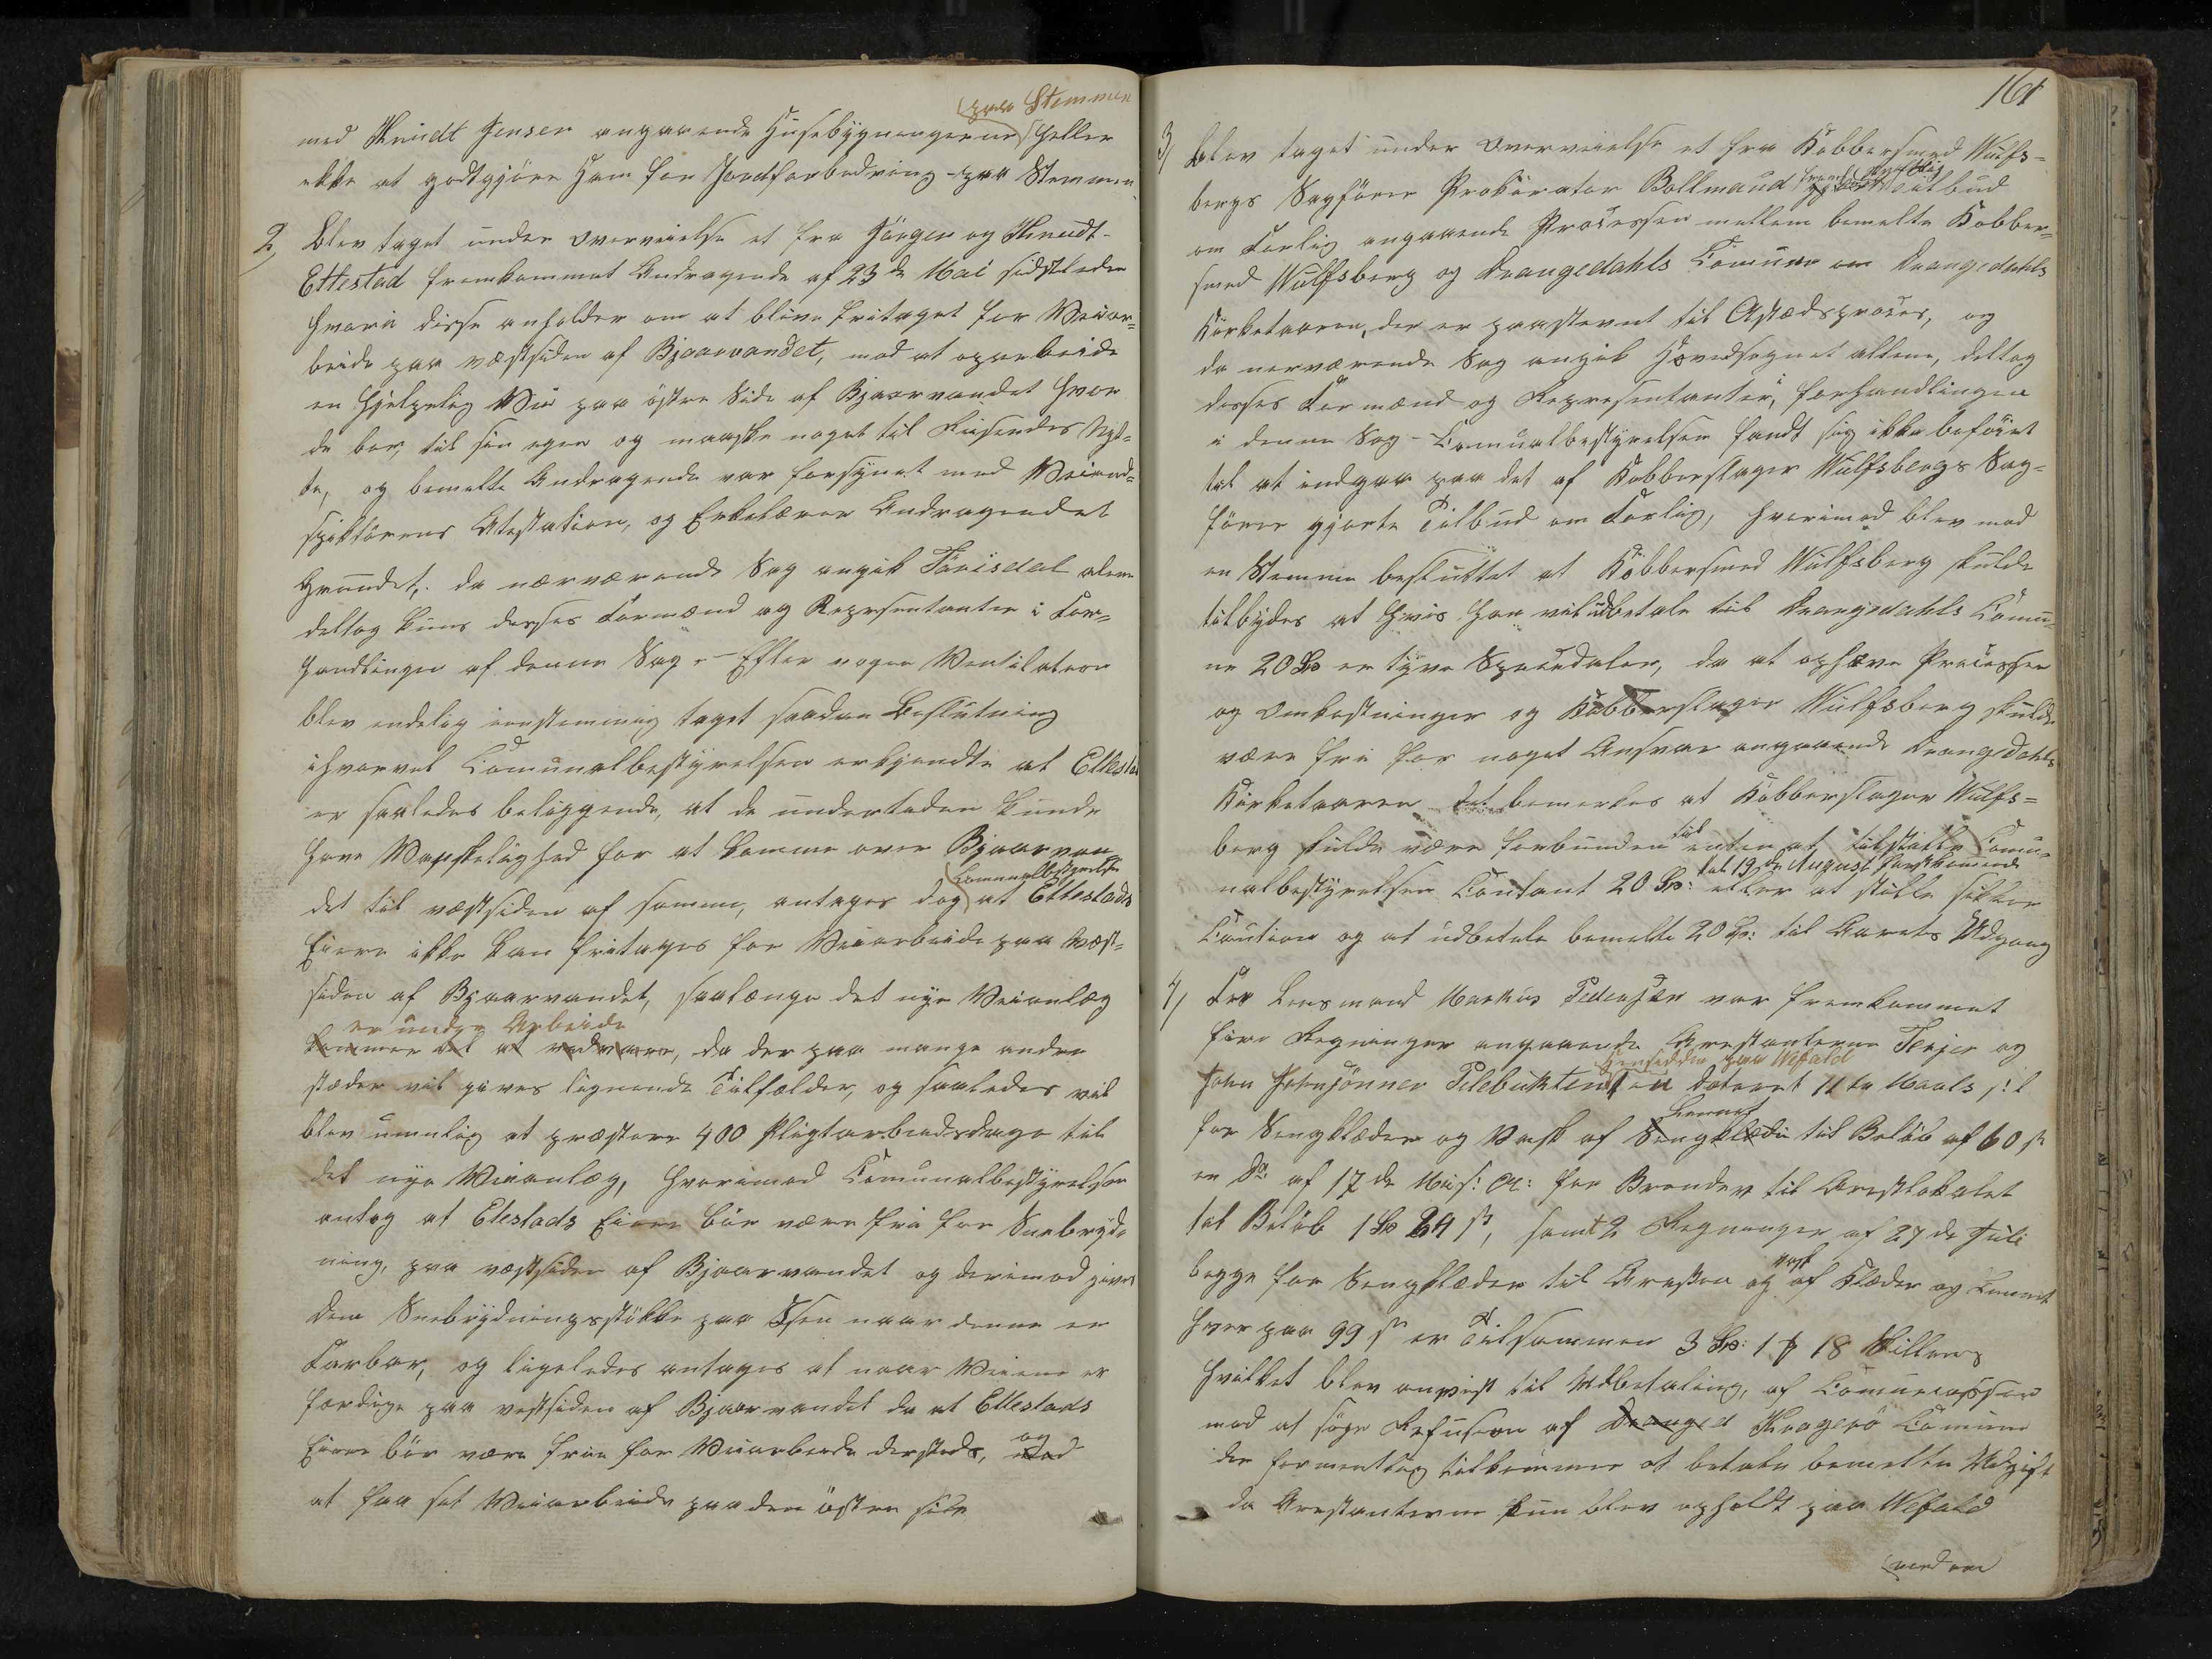 (paa Stemmen
med Knudt Jensen angaaende Husebygningerne) heller
ikke at godtgjöre Ham for Jordforbedring paa Stemmen
2, Blev taget under Overveielse et fra Jörgen og Knudt
Ettestad fremkommet Andragende af 23de Mai sidstleden
hvori disse anholder om at blive fritaget for Veiar=
beide paa væstsiden af Bjaarvandet, mod at oparbeide
en hjelpelig Vei paa östre Side af Bjaarvandet hvor
de bor, til sin egen og maaske noget til Reisendes Nyt=
te, og bemelte Andragende var forsynet med Veiind=
spiktörens Attestation, og Erklærer Andragendet
Grundet,. da nærværende Sag angik Törisdal alene
deltog kuns dersès Formænd og Reprsentanter i For=
handlingen af denne Sag. - Efter nogen Ventilation
blev endelig eenstemmig taget saadan Beslutning
ihvorvel Comunalbestyrelsen erkjendte at Ettestad
er saaledes beliggende, at de undertiden kunde
have Vanskelighed for at komme over Bjaarvan
(Comunalbestyrelsen
det til væstsiden af samme, antages dog) at Ettestads
Eiere ikke kan fritages for Veiarbeide paa væst=
siden af Bjaarvandet, saalænge det nye Veianlæg
er under Arbeide
kommer til at vedvare, da der paa mange andre
stæder vil gives lignende Tilfælder, og saaledes vil
blev umulig at præstere 400 Pligtarbeidsdage til
det nye Veianlæg, hvorimod Comunalbestyrelsen
antog at Etestads Eiere bör være fri for Snebryd=
ning, paa væstsiden af Bjaarvandet og derimod gives
dem Snebrydningsstökke paa Isen naar denne er
Farbar, og ligeledes antages at naar Veiene er
færdige paa vestsiden af Bjaarvandet da at Ettestads
Eiere bör være frie for Veiarbeide dersteds, og mod
at faa sit Veiarbeide paa den östre side
161
3, Blev taget under Overveielse et fra Kobbersmed Wulfs=
bergs Sagförer Prokurator Bollmaud skriftlig tilbud
om Forlig angaaende Processen mellem bemelte Kobber=
smed Wulfsberg og Drangedahls Comune om Drangedahls
Kirketaarn, der er paastevnt til Astædsproces, og
da nerværende Sag angik Hovedsognet allene, deltog
dersès Formænd og Representanter, forhandlingen
i denne Sag - Comunalbestyrelsen fandt sig ikke beföiet
til at indgaa paa det af Kobberslager Wulfsbergs Sag=
förer gjorte Tilbud om Forlig, hvorimod blev med
en Stemme besluttet at Kobbersmed Wulfsberg skulde
tilbydes at hvis han vil udbetale til Drangedahls Comu=
ne 20 Spd er tyve Speciedaler, da at ophæve Processen
og Omkostninger og Kobberslager Wulfsberg skulde
være fri for noget Ansvar angaaende Drangedahls
Kirketaaren det bemerkes at Kobberslager Wulfs=
berg skulde være forbunden til enten at tilstille Comu=
til 19de August förstkomende
nalbestyrelsen Contant 20 Spd: eller at stille sikker
Caution og at udbetale bemelte 20 Spd: til Aarets Udgang
4, Fra Lensmand Markus Pedersen var fremkommet
fire Regninger angaaende Arestanterne Terjer og
Hensiddne paa Wefald
John Johnsönner Pelebukten, en Dateret 11te Marts s: l
for Sengklæder og Vask af Sengklæde Linnet til Belöb af 60 s
en Do af 17de Mai s: A: for Brænde til Arestlokalet
til Belöb 1 Spd 24 s, samt 2 Regninger af 27de Juli
begge for Sengklæder til Aresten og Vask af Klæder og Linnet
hver paa 99 s er Tilsammen 3 Spd: 1 # 18 Skillings
hvilket blev anvist til Udbetaling, af Comunecassen
med at söge Refusion af Dranged Kragerö Comune
der formentlig tilkommer at betale bemelte Udgift
da Arestanterne kun blev opholdt paa Wefald
(vend om